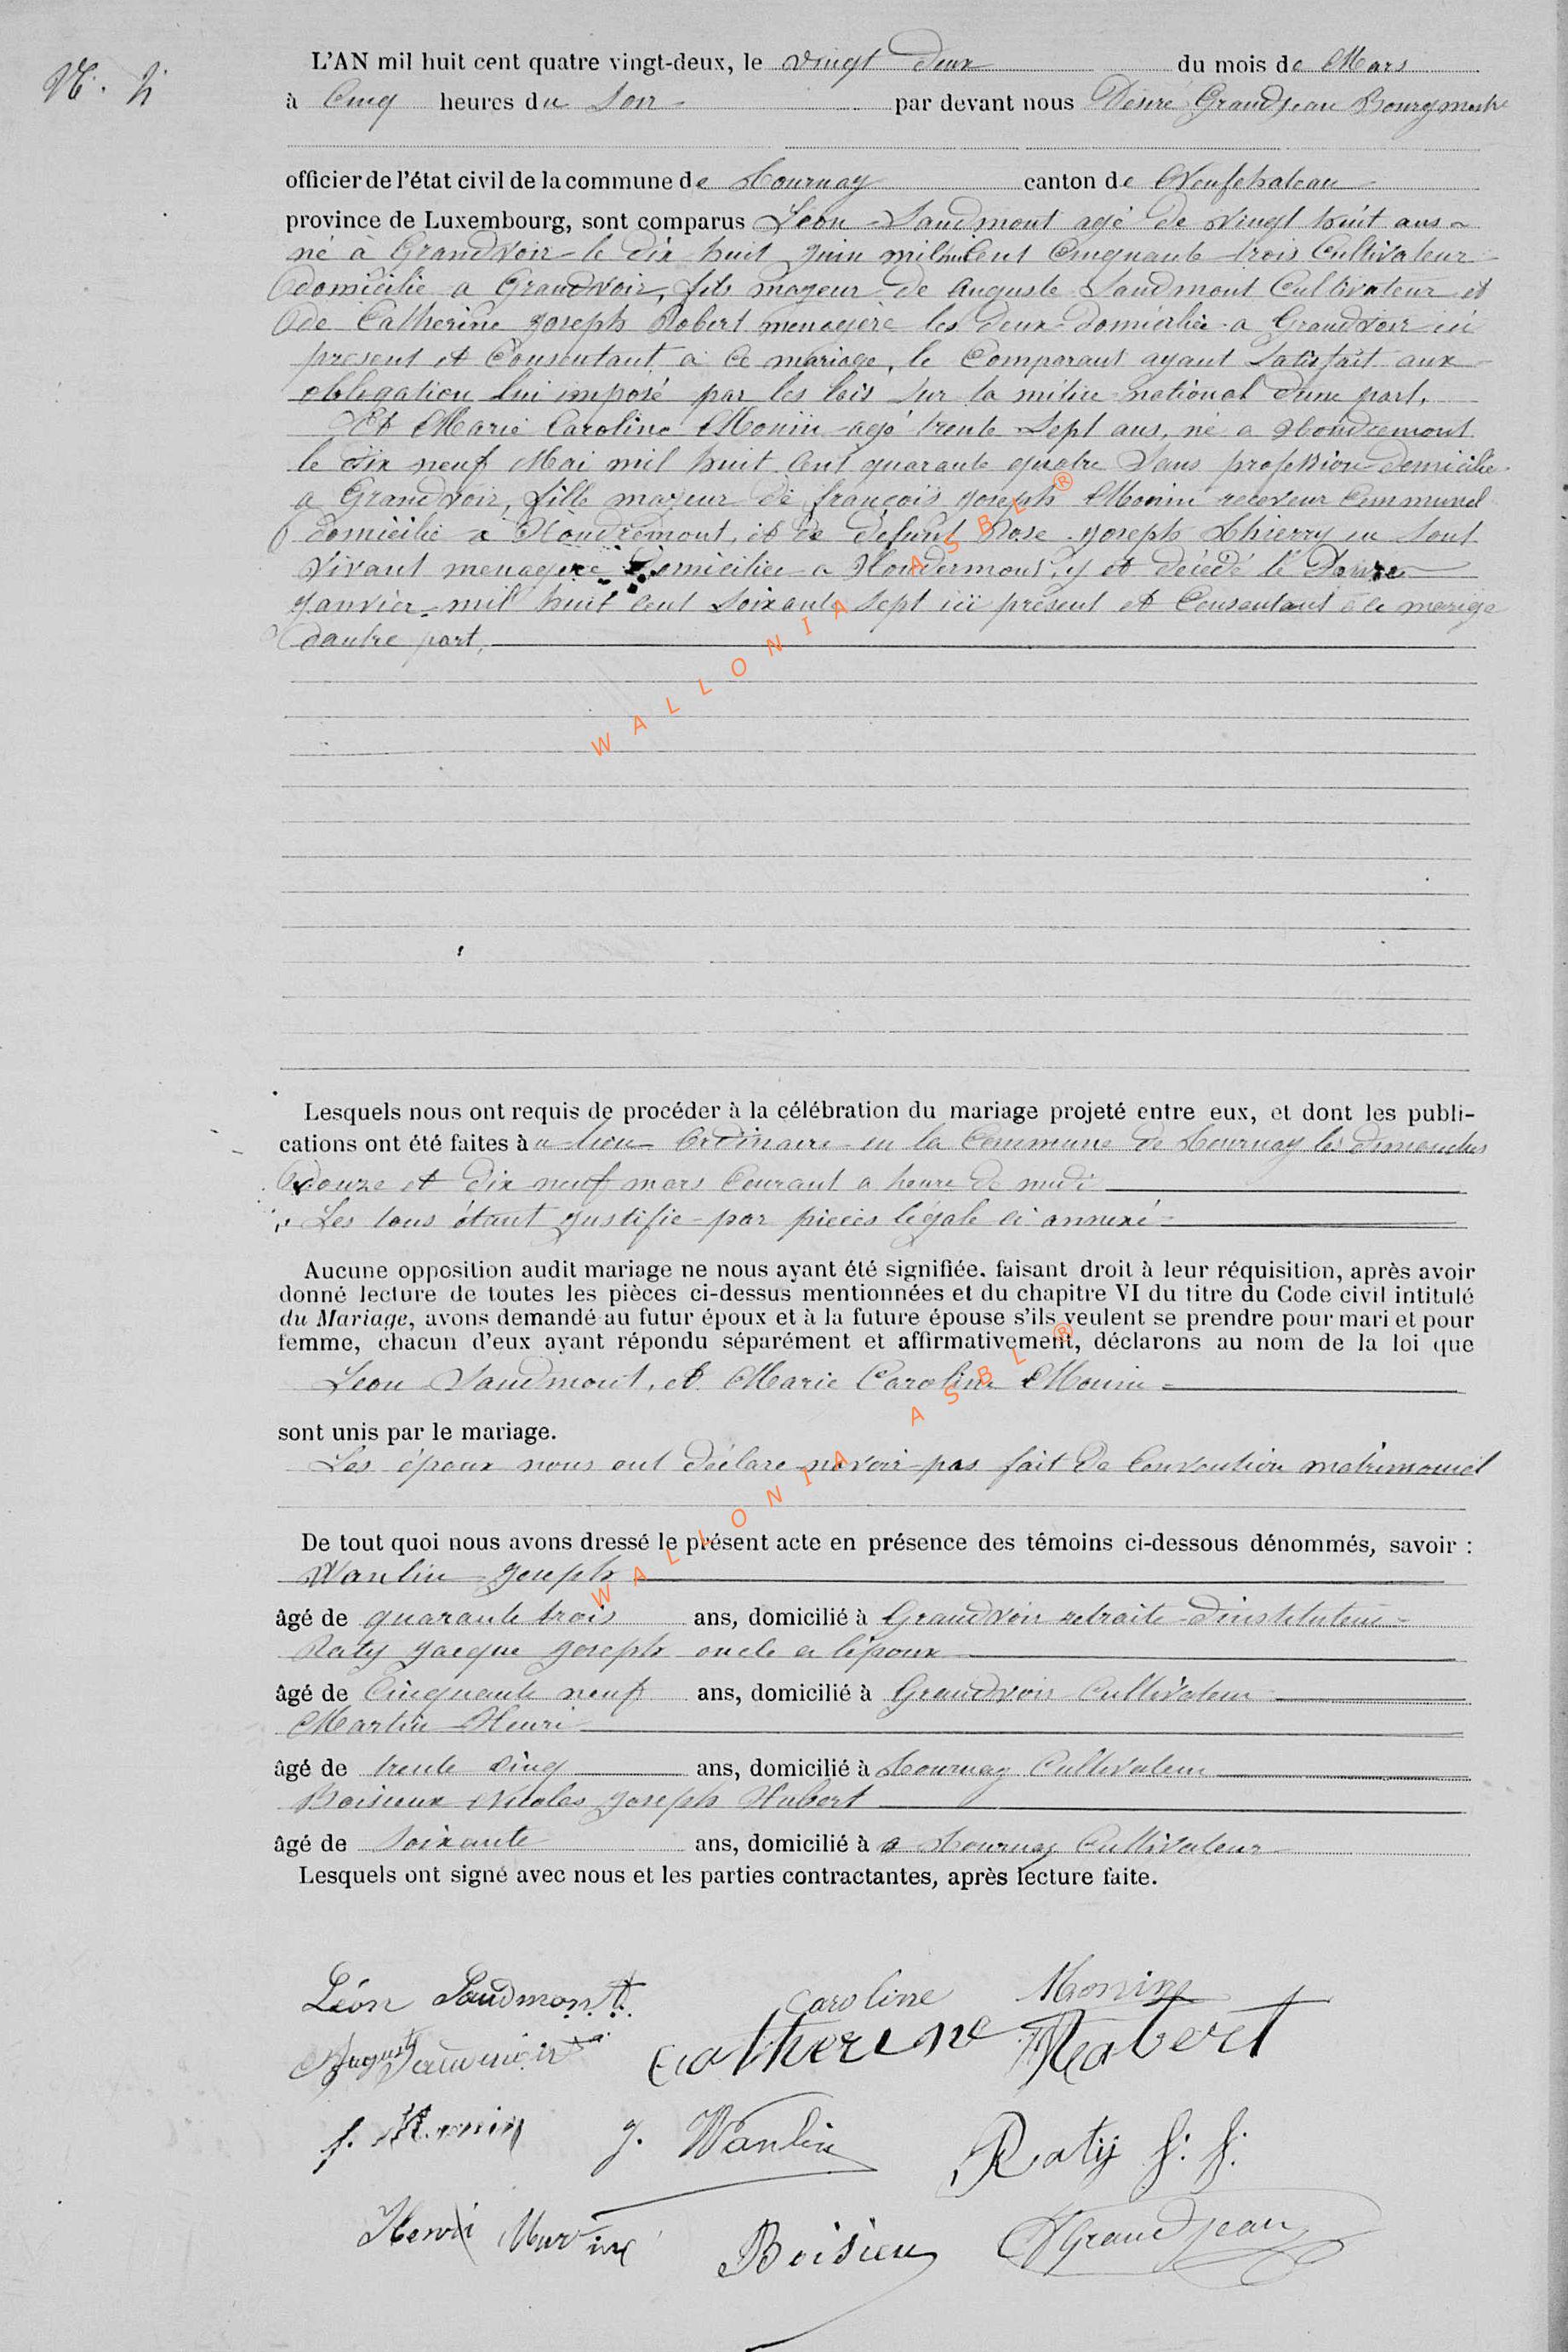 L'AN mil huit cent quatre vingt-deux, le vingt deux du mois de Mars
à Cinq heures du Soir par devant nous Désiré Grandjean Bourgmestre
officier de l'état civil de la commune de Tournay canton de Neufchateau
province de Luxembourg, sont comparus Léon Saudmont agé de vingt huit ans
né à Grandvoir le dix huit Juin mil huit Cent Cinquante trois Cultivateur
domicilié a Grandvoir, fils mageur de Auguste Saudmont Cultivateur et
de Catherine Joseph Robert menagère les deux domicilié a Grandvoir ici
present et Consentant a Ce mariage, le Comparant ayant Satisfait aux
obligation lui imposé par les lois sur la milice national dune part.
Et Marie Caroline Monin agé trente Sept ans, né a Houdremont
le dix neuf Mai mil huit Cent quarante quatre Sans profession domicilié
a Grandvoir, fille majeur de françois Joseph Monin receveur Communal
domicilié a Houdremont, et de defunt Rose Joseph Thierry en Sont
Vivant menagere Domiciliée a Houdermont, y et décédé le Douze
Janvier mil huit Cent Soixante Sept ici présent et Consentant a ce mariage
dautre part,
Lesquels nous ont requis de procéder à la célébration du mariage projeté entre eux, et dont les publi-
cations ont été faites à u lieu Ordinaire en la Commune de Tournay les dimanches
douze et dix neuf mars Courant a heure de midi
Les tous étant Justifie par pieces légale ci annexé
Aucune opposition audit mariage ne nous ayant été signifiée. faisant droit à leur réquisition, après avoir
donné lecture de toutes les pièces ci-dessus mentionnées et du chapitre VI du titre du Code civil intitulé
du Mariage, avons demandé au futur époux et à la future épouse s'ils veulent se prendre pour mari et pour
femme, chacun d'eux ayant répondu séparément et affirmativement, déclarons au nom de la loi que
Léon Saudmont, et Marie Caroline Monin
sont unis par le mariage.
Les époux nous ont déclare navoir pas fait de Convention matrimonial
De tout quoi nous avons dressé le présent acte en présence des témoins ci-dessous dénommés, savoir :
Wanlin Joseph
âgé de quarante trois ans, domicilié à Grandvoir retraite dinstituteur
Raty Jacque Joseph oncle a lépoux
âgé de Cinquante neuf ans, domicilié à Grandvoir Cultivateur
Martin Henri
âgé de trente Cinq ans, domicilié à Tournay Cultivateur
Boisieux Nicolas Joseph Hubert
âgé de Soixante ans, domicilié à a Tournay Cultivateur
Lesquels ont signé avec nous et les parties contractantes, après lecture faite.
Léon Saudmont Caroline Monin
Auguste Catherine Robert
f. Monin J. Wanlin Raty J. J.
Henri Martin Boisieu D Grandjean
WALLONIA ASBL ®
WALLONIA ASBL ®